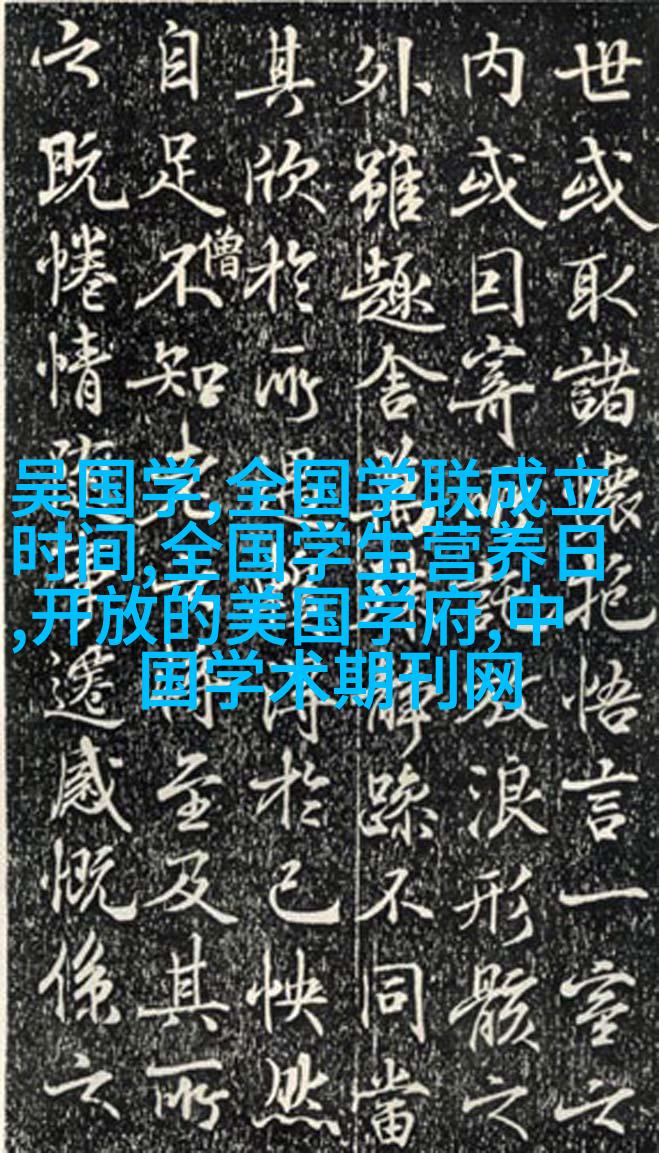 世或取諸懷抱悟言一室之
内或因寄託放浪形骸之
外雖趣舍萬静躁不同當
其欣於所遇得於己怏然
自足不知老將至及其所
僧
之既惓情隨事遷感慨係之
吴国学,全国学联成立
时间,全国学生营养日
,开放的美国学府,中
国学术期刊网